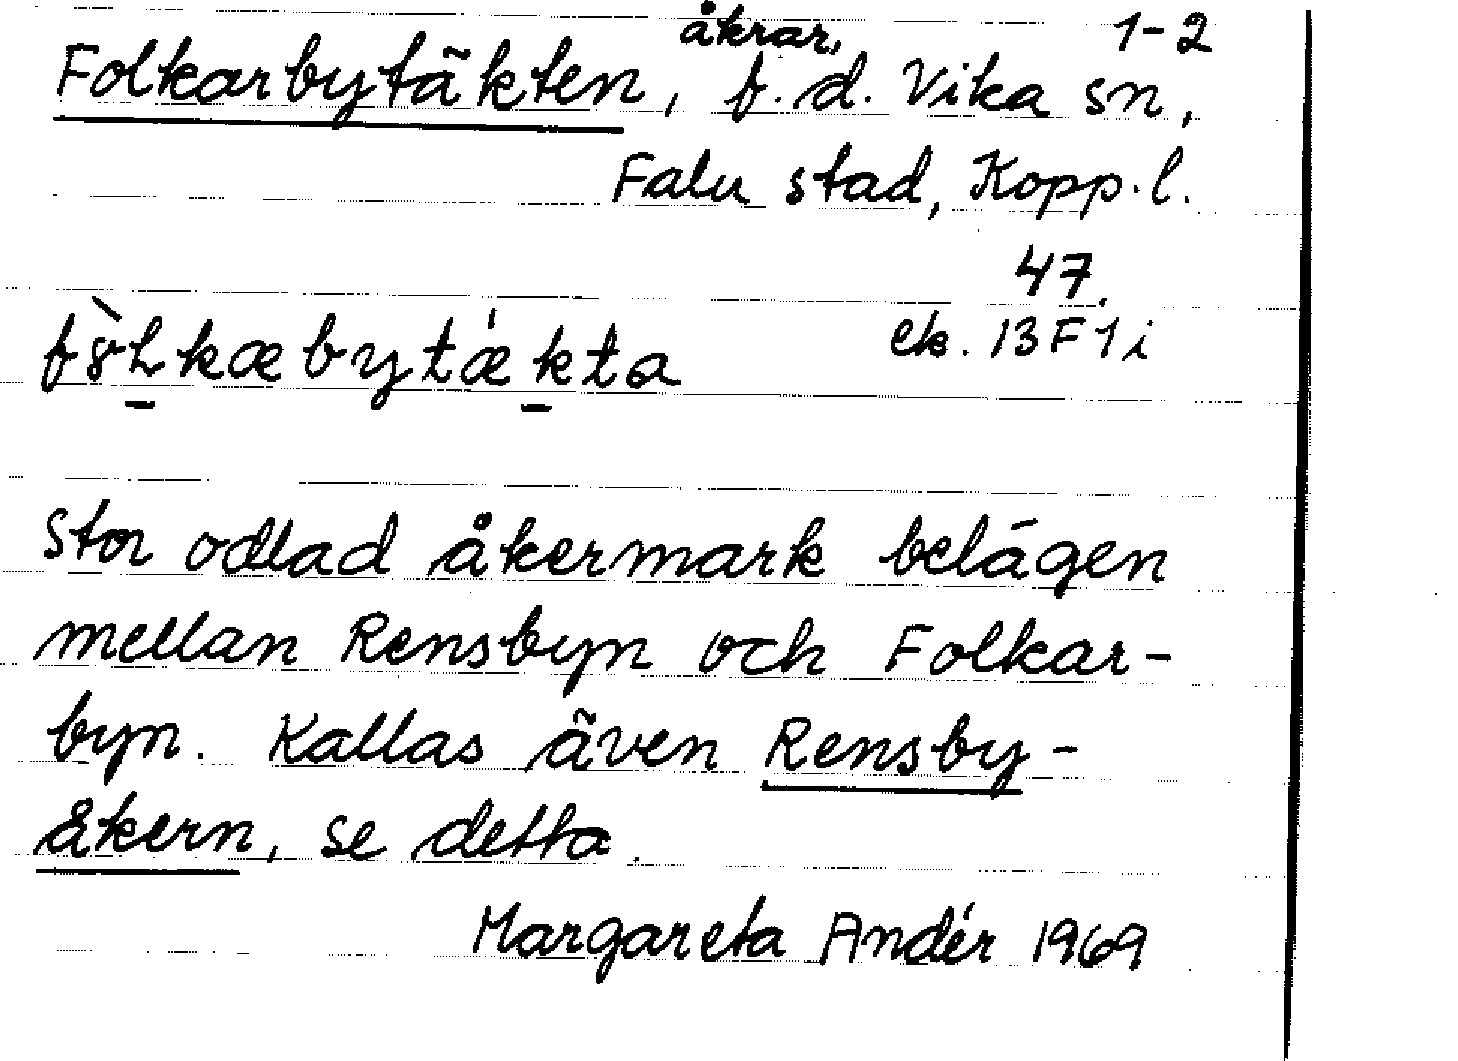 åkrar, 1-2
Folkarbytäkten, f.d. Vika sn,
Falu stad, Kopp.l.
47.
ek. 13F1i
Stor odlad åkermark belägen
mellan Rensbyn och Folkar-
byn. Kallas även Rensby-
åkern, se detta.
Margareta Andér 1969